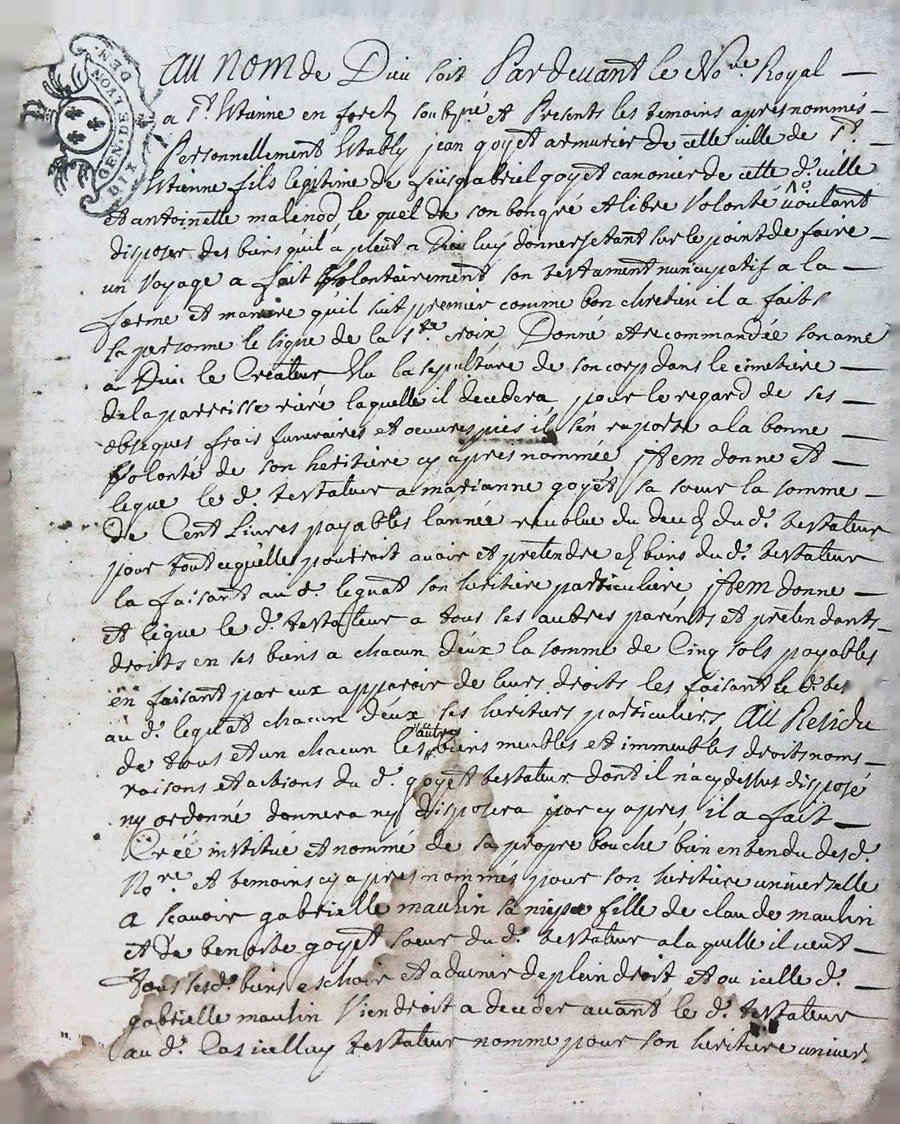 GEN. DE LYON
DIX DEN.
Au nom de Dieu soit Pardevant le No.re Royal
a S.t Etienne en forest soubsné et Presents les temoins apres nommés
Personnellement Etably jean goyet armurier de cette ville de S.t
Etienne fils legitime de feu gabriel goyet canonier de cette d. ville
et antoinette malenod le quel de son bon gré et libre volonté voulant
disposer des biens quil a pleut a Dieu luy donner et ant sur le point de faire
un voyage a fait volontairement son testament nuncupatif a la
forme et maniere quil suit premier comme bon chretien il a fait
sa personne le signe de la S.te croix Donné et recommandée son ame
a Dieu le Createur Elu la sepulture de son corp dans le cimetiere
de la parroisse riere laquelle il decedera pour le regard de ses
obseques frais funeraires et oeuvres pies il s'en raporte a la bonne
volonté de son heritiere cy apres nommée jtem donne et
legue le d. testateur a marianne goyet sa soeur la somme
de Cent Livres payables lannée revolue du deces du d. testateur
pour tout cequelle pourroit avoir et pretendre es biens du d. testateur
la faisant au d. leguat son heritiere particuliere jtem donne
et legue le d. testateur a tous ses autres parents et pretendants
droits en ses biens a chacun deux la somme de Cinq sols payables
en faisant par eux apparoir de leurs droits les faisant le d. tes
au d. leguat chacun deux ses heritiers particuliers, au Residu
de tous et un chacun les autres biens meubles et immeubles droits noms
raisons et actions du d. goyet testateur dont il n'a cy dessus disposé
ny ordonné donnera ny disposera par cy apres, il a fait
Créé institué et nommé de sa propre bouche bien entendu des d.
No.re et temoins cy apres nommés pour son heritiere universelle
a scavoir gabrielle maulin sa niepce fille de claude maulin
et de benoite goyet soeur du d. testateur a la quelle il veut
tous ses d. biens eschoir et advenir de plein droit et ou icelle d.
gabrielle maulin viendroit a deceder avant le d. testateur
au d. Cas icelluy testateur nomme pour son heritiere univer